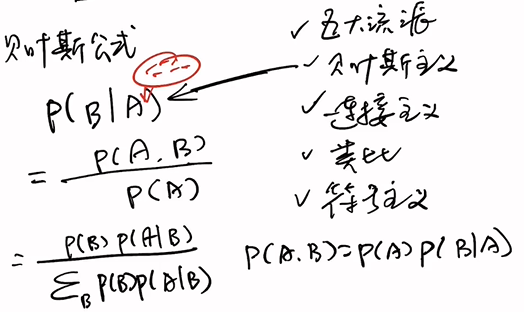 贝叶斯公式
P(B|A)
= P(A,B) / P(A)
= P(B)P(A|B) / Σ_B P(B)P(A|B)
✓ 五大流派
✓ 贝叶斯主义
✓ 连接主义
✓ 类比
✓ 符号主义
P(A,B)=P(A)P(B|A)